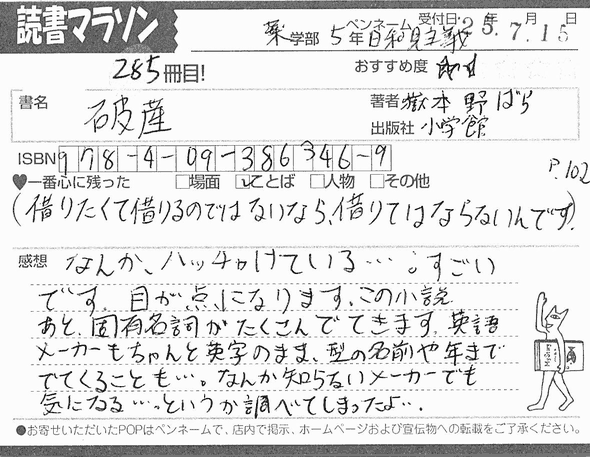 読書マラソン
薬学部 5年 ペンネーム 日和見主義 受付日:25年7月15日
285冊目!
おすすめ度
書名 破産
著者 嶽本野ばら
出版社 小学館
ISBN 978-4-09-386346-9
P.102
♥一番心に残った □場面 ☑ことば □人物 □その他
(借りたくて借りるのではないなら、借りてはならないんです)
感想 なんか、ハッチャけている…。すごい
です。目が点になります。この小説
あと、固有名詞がたくさんでてきます。英語
メーカーもちゃんと英字のまま、型の名前や年まで
でてくることも…。なんか知らないメーカーでも
気になる…っというか調べてしまったよ…
●お寄せいただいたPOPはペンネームで、店内で掲示、ホームページおよび宣伝物への転載をご了承ください。